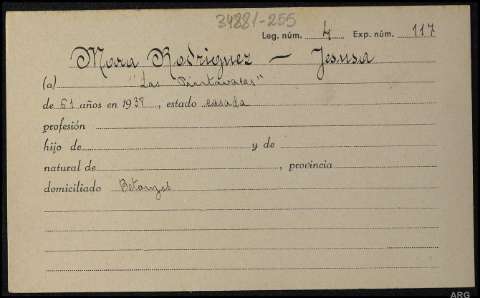 34881-255
Leg. núm. 4 Exp. núm. 117
Mora Rodriguez - Jesusa
(a) "Las
de 61 años en 1938, estado casada
profesión
hijo de y de
natural de , provincia
domiciliado Betanzos
ARG